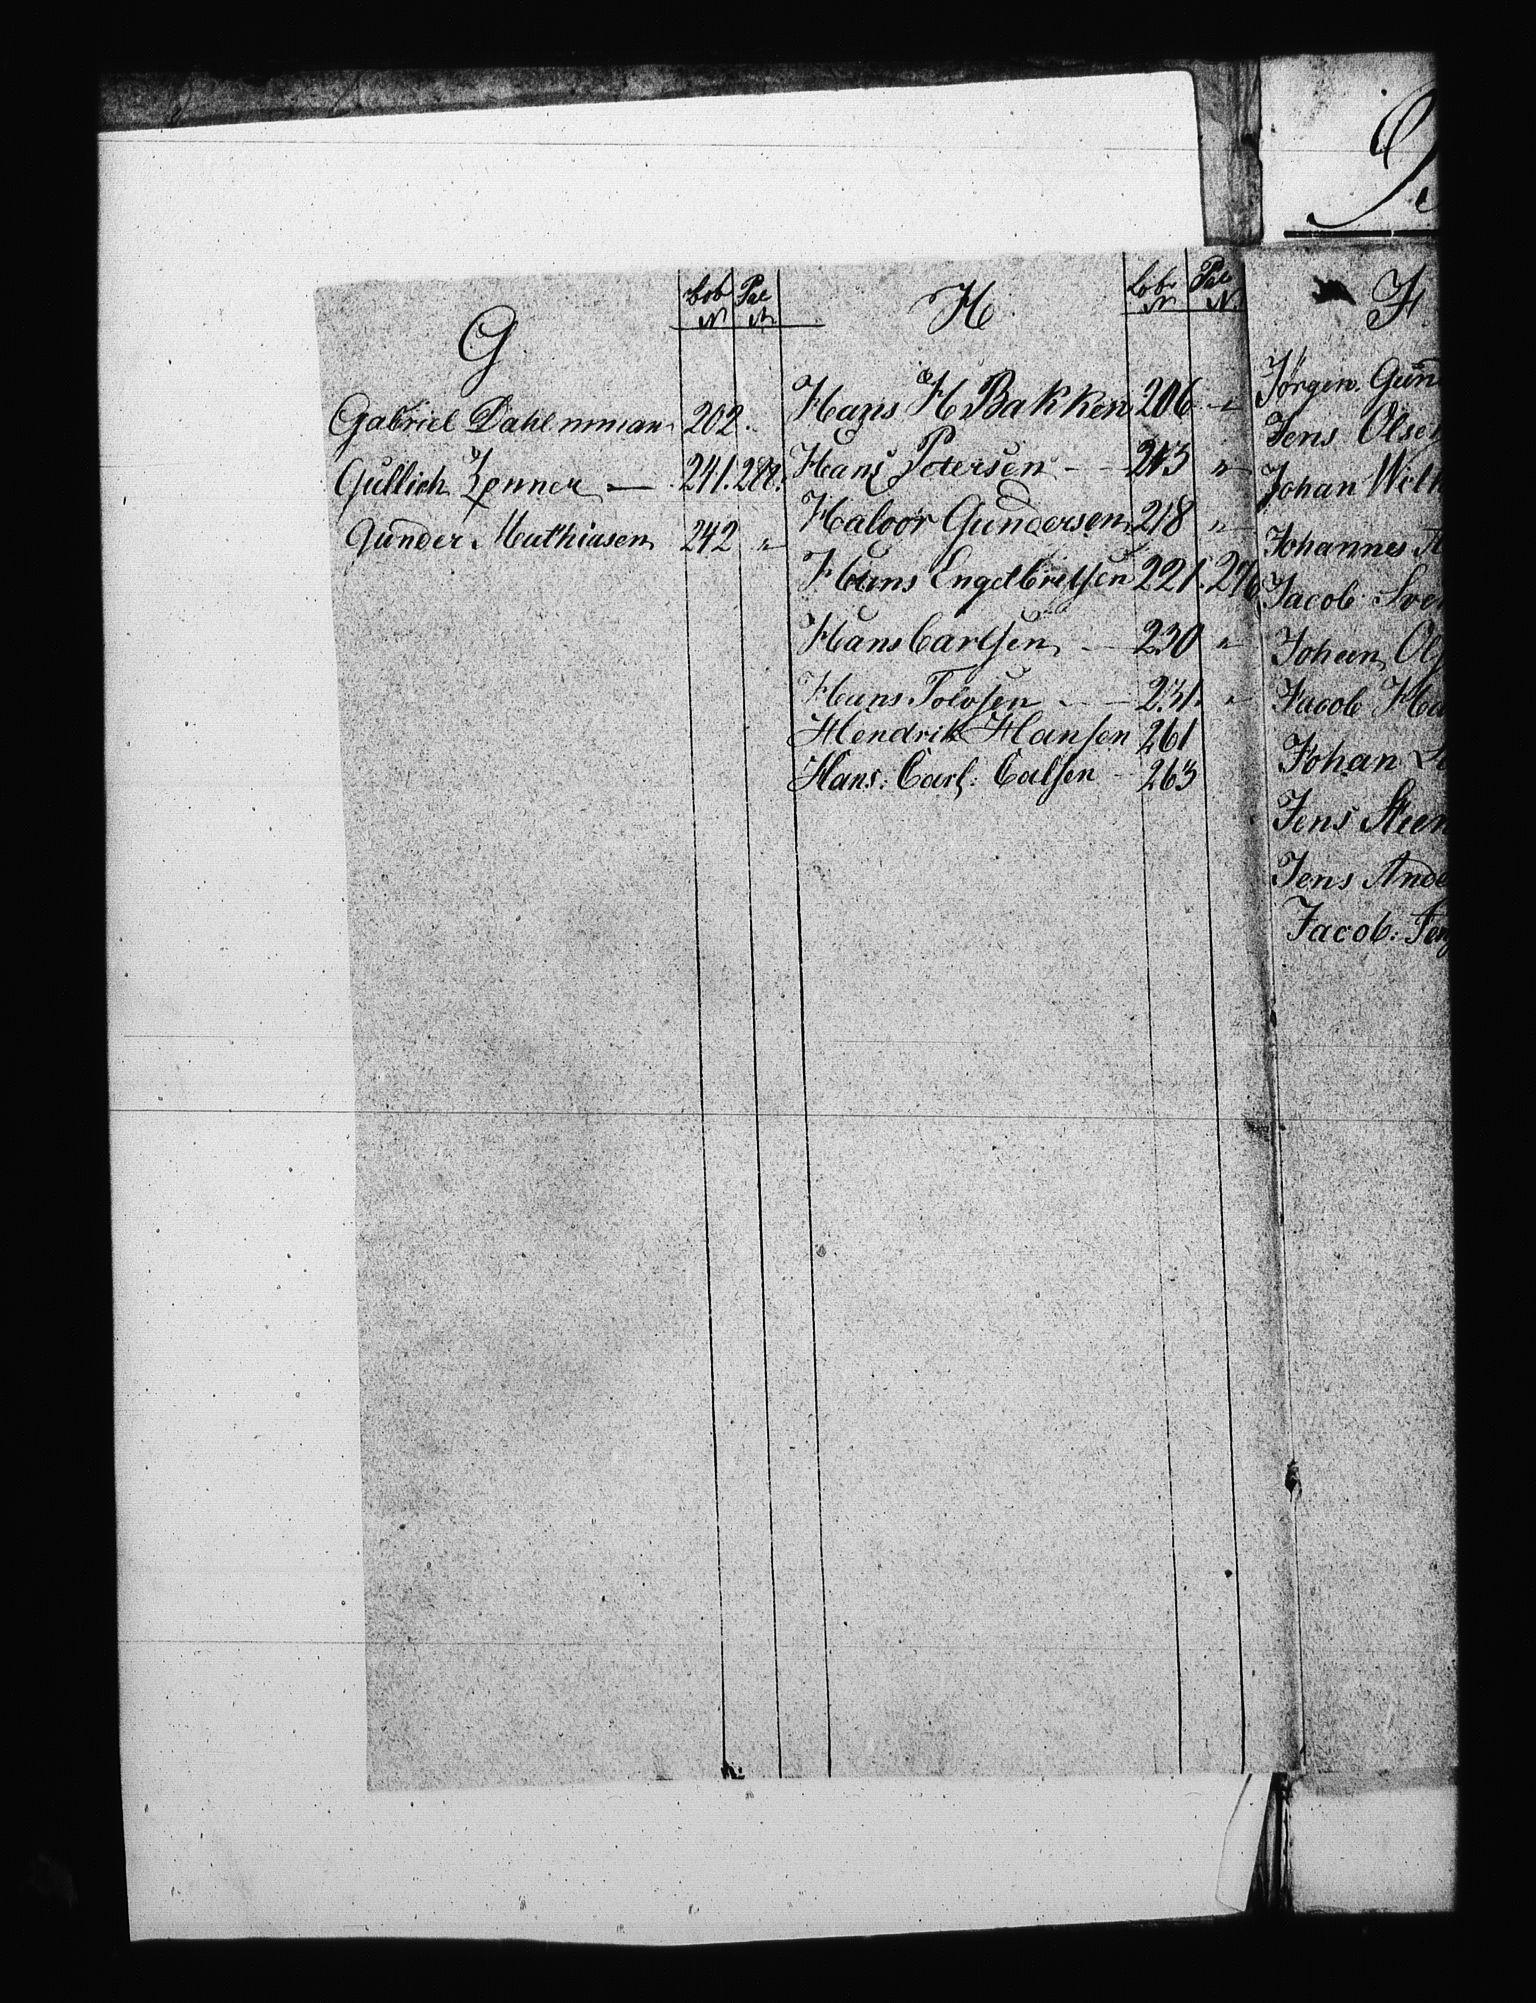 G
Lob Pat
N N
Gabriel Dahlmman 202.
Gullich Zenner — 241. 288.
Gunder Mathiasen 242 "
H.
Lob Pat
N N.
Hans H Bakken 206 "
Hans Petersen - - 213 "
Haloor Gundersen 218 "
Hans Engelbretsen 221. 296
Hans Carlsen - - 230 "
Hans Tolvsen - - 231. "
Hendrik Hansen 261
Hans: Carl: Calsen - 263
J
Jørgen Gun
Jens Olsen
Johan Wilh
Johannes A
Jacob Sven
Johan Ols
Jacob Ha
Johan
Jens Steen
Jens Ande
Jacob: Jen